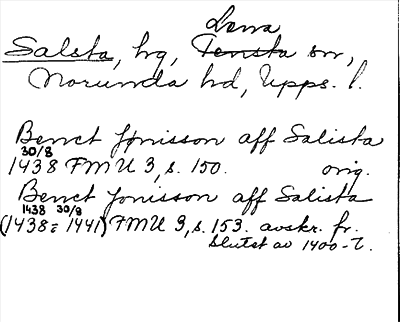 Lena
Salsta, hg, Tensta sn,
Norunda hd, Upps. l.
Benct Jönisson aff Salista
30/8
1438 FMU 3, s. 150. orig.
Benct Jonisson aff Salista
1438 30/8
(1438 = 1441) FMU 3, s. 153. avskr. fr.
slutet av 1400-t.